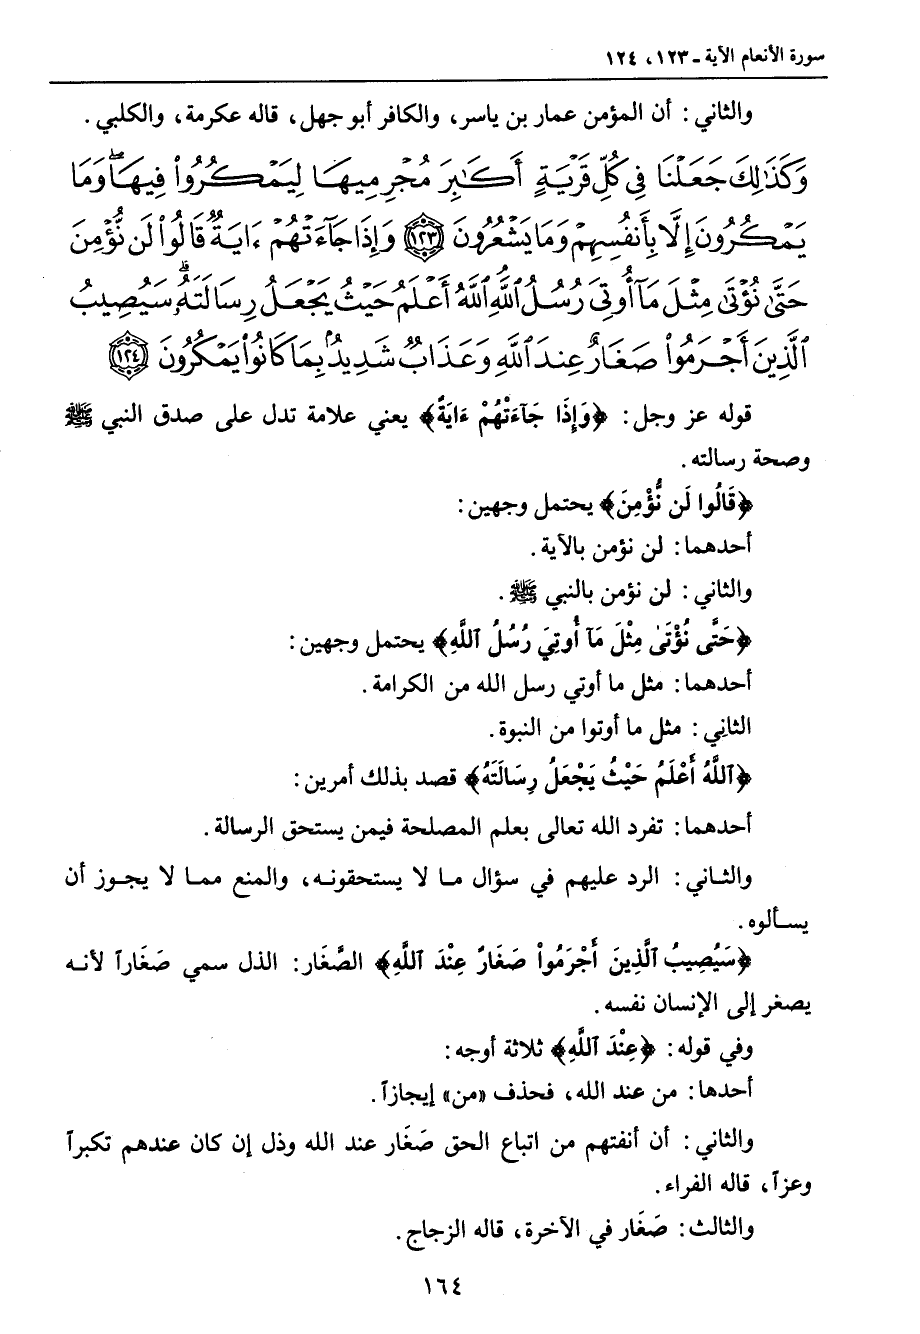 سورة الأنعام الآية ـ ١٢٣، ١٢٤
والثاني: أن المؤمن عمار بن ياسر، والكافر أبو جهل، قاله عكرمة، والكلبي.
وَكَذَٰلِكَ جَعَلْنَا فِي كُلِّ قَرْيَةٍ أَكَٰبِرَ مُجْرِمِيهَا لِيَمْكُرُوا۟ فِيهَا ۖ وَمَا
يَمْكُرُونَ إِلَّا بِأَنفُسِهِمْ وَمَا يَشْعُرُونَ ١٢٣ وَإِذَا جَآءَتْهُمْ ءَايَةٌ قَالُوا۟ لَن نُّؤْمِنَ
حَتَّىٰ نُؤْتَىٰ مِثْلَ مَآ أُوتِيَ رُسُلُ ٱللَّهِ ٱللَّهُ أَعْلَمُ حَيْثُ يَجْعَلُ رِسَالَتَهُۥ ۗ سَيُصِيبُ
ٱلَّذِينَ أَجْرَمُوا۟ صَغَارٌ عِندَ ٱللَّهِ وَعَذَابٌ شَدِيدٌۢ بِمَا كَانُوا۟ يَمْكُرُونَ ١٢٤
قوله عز وجل: ﴿وَإِذَا جَآءَتْهُمْ ءَايَةٌ﴾ يعني علامة تدل على صدق النبي ﷺ
وصحة رسالته.
﴿قَالُوا لَن نُّؤْمِنَ﴾ يحتمل وجهين:
أحدهما: لن نؤمن بالآية.
والثاني: لن نؤمن بالنبي ﷺ.
﴿حَتَّى نُؤْتَىٰ مِثْلَ مَآ أُوتِيَ رُسُلُ ٱللَّهِ﴾ يحتمل وجهين:
أحدهما: مثل ما أوتي رسل الله من الكرامة.
الثاني: مثل ما أوتوا من النبوة.
﴿ٱللَّهُ أَعْلَمُ حَيْثُ يَجْعَلُ رِسَالَتَهُ﴾ قصد بذلك أمرين:
أحدهما: تفرد الله تعالى بعلم المصلحة فيمن يستحق الرسالة.
والثاني: الرد عليهم في سؤال ما لا يستحقونه، والمنع مما لا يجوز أن
يسألوه.
﴿سَيُصِيبُ ٱلَّذِينَ أَجْرَمُوا۟ صَغَارٌ عِنْدَ ٱللَّهِ﴾ الصَّغَار: الذل سمي صَغَاراً لأنه
يصغر إلى الإنسان نفسه.
وفي قوله: ﴿عِنْدَ ٱللَّهِ﴾ ثلاثة أوجه:
أحدها: من عند الله، فحذف «من» إيجازاً.
والثاني: أن أنفتهم من اتباع الحق صَغَار عند الله وذل إن كان عندهم تكبراً
وعزاً، قاله الفراء.
والثالث: صَغَار في الآخرة، قاله الزجاج.
١٦٤